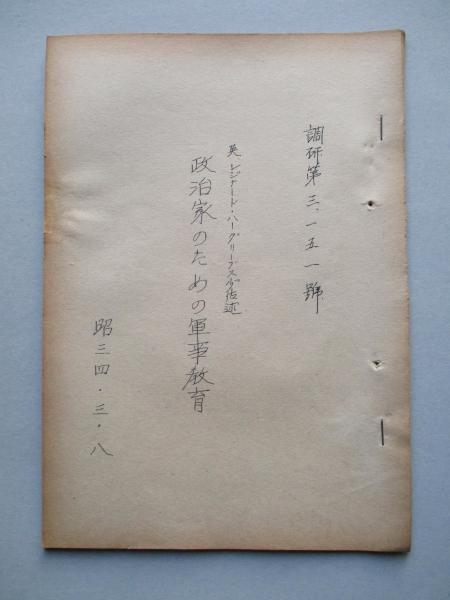 調研第三・一五一號
英 レジナード・ハーグリーブス少佐述
政治家のための軍事教育
昭三四・三・八